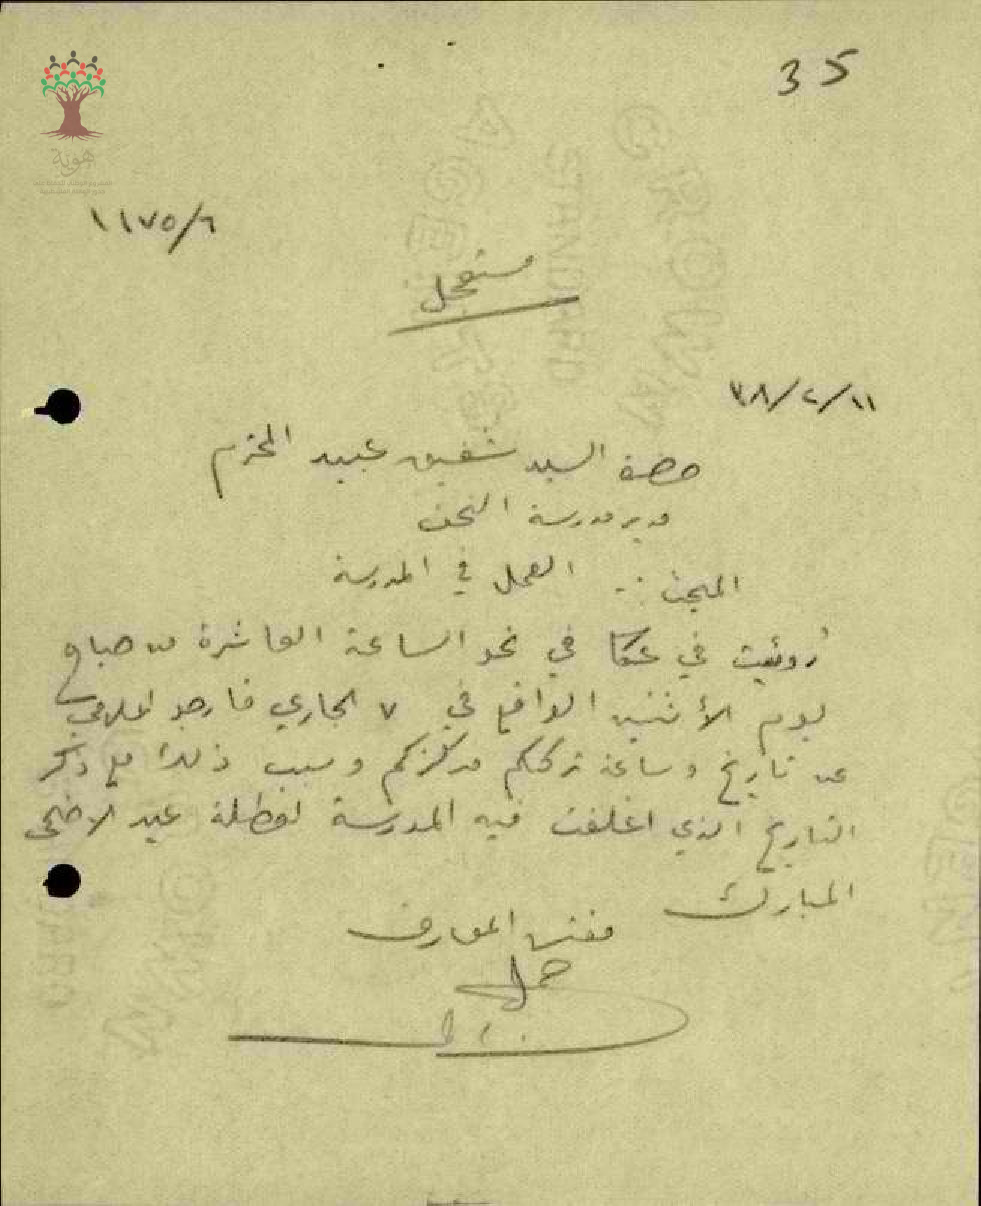 35
هوية
١١٧٥/٦
مستعجل
٣٨/٢/١١
حضرة السيد شفيق عبيد المحترم
مدير مدرسة النحف
المبحث :- العمل في المدرسة
رُوئيت في عكا في نحو الساعة العاشرة من صباح
يوم الأثنين الواقع في ٧ الجاري فارجو اعلامي
عن تاريخ وساعة ترككم مركزكم وسبب ذلك مع ذكر
التاريخ الذي اغلقت فيه المدرسة لعطلة عيد الاضحى
المبارك
مفتش المعارف